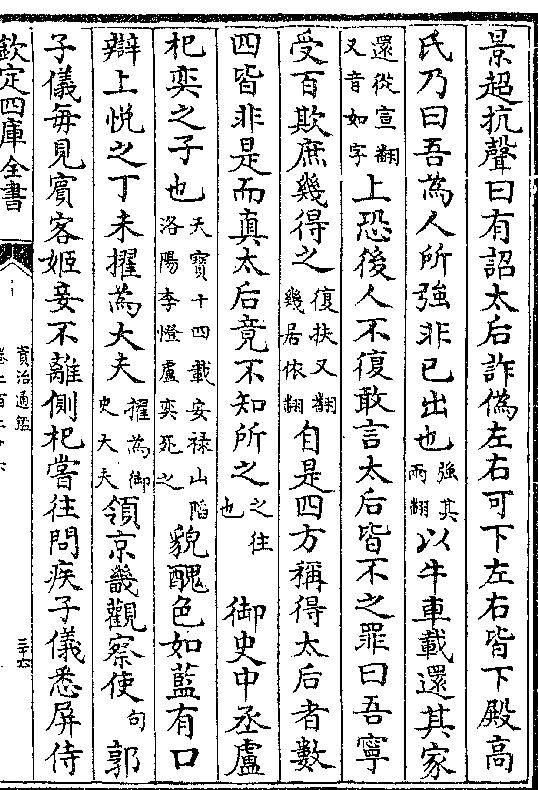 景超抗聲曰有詔太后詐偽左右可下左右皆下殿高
氏乃曰吾為人所強非已出也強其兩翻以牛車載還其家
還從宣翻又音如字上恐後人不復敢言太后皆不之罪曰吾寧
受百欺庶幾得之復扶又翻幾居依翻自是四方稱得太后者數
四皆非是而真太后竟不知所之之往也 御史中丞盧
杞奕之子也天寳十四載安禄山陷洛陽李憕盧奕死之貌醜色如藍有口
辯上悦之丁未擢為大夫擢為御史大夫領京畿觀察使句郭
子儀每見賓客姬妾不離側杞嘗往問疾子儀悉屏侍
欽定四庫全書
資治通鑑
卷二百二十六